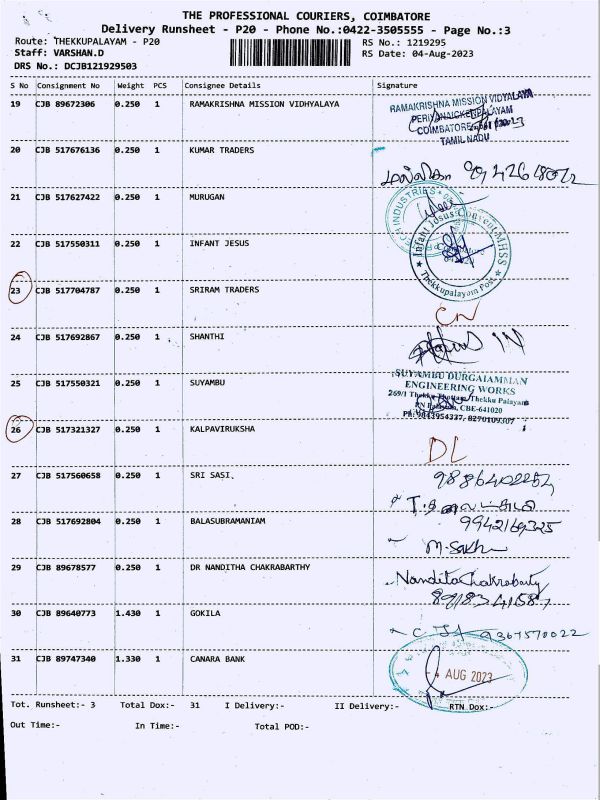 THE PROFESSIONAL COURIERS, COIMBATORE
Delivery Runsheet - P20 - Phone No.:0422-3505555 - Page No.:3
Route: THEKKUPALAYAM - P20
RS No.: 1219295
Staff: VARSHAN.D
RS Date: 04-Aug-2023
DRS No.: DCJB121929503
S No Consignment No Weight PCS Consignee Details Signature
19 CJB 89672306 0.250 1 RAMAKRISHNA MISSION VIDHYALAYA
RAMAKRISHNA MISSION VIDYALAYA
PERIYANAICKENPALAYAM
COIMBATORE
TAMIL NADU
20 CJB 517676136 0.250 1 KUMAR TRADERS
21 CJB 517627422 0.250 1 MURUGAN
INDUSTRIES
22 CJB 517550311 0.250 1 INFANT JESUS
Infant Jesus Convent MHSS
Thekkupalayam Post
23 CJB 517704787 0.250 1 SRIRAM TRADERS
CN
24 CJB 517692867 0.250 1 SHANTHI
25 CJB 517550321 0.250 1 SUYAMBU
SUYAMBU DURGAIAMMAN
ENGINEERING WORKS
269/1 Thekku Thottam, Thekku Palayam
CBE-641020
Ph: 9843954337, 8270109307
26 CJB 517321327 0.250 1 KALPAVIRUKSHA
DL
27 CJB 517560658 0.250 1 SRI SASI.
28 CJB 517692804 0.250 1 BALASUBRAMANIAM
9942169325
29 CJB 89678577 0.250 1 DR NANDITHA CHAKRABARTHY
Nandita Chakrabarty
30 CJB 89640773 1.430 1 GOKILA
9367570022
31 CJB 89747340 1.330 1 CANARA BANK
4 AUG 2023
Tot. Runsheet:- 3 Total Dox:- 31 I Delivery:- II Delivery:- RTN Dox:-
Out Time:- In Time:- Total POD:-